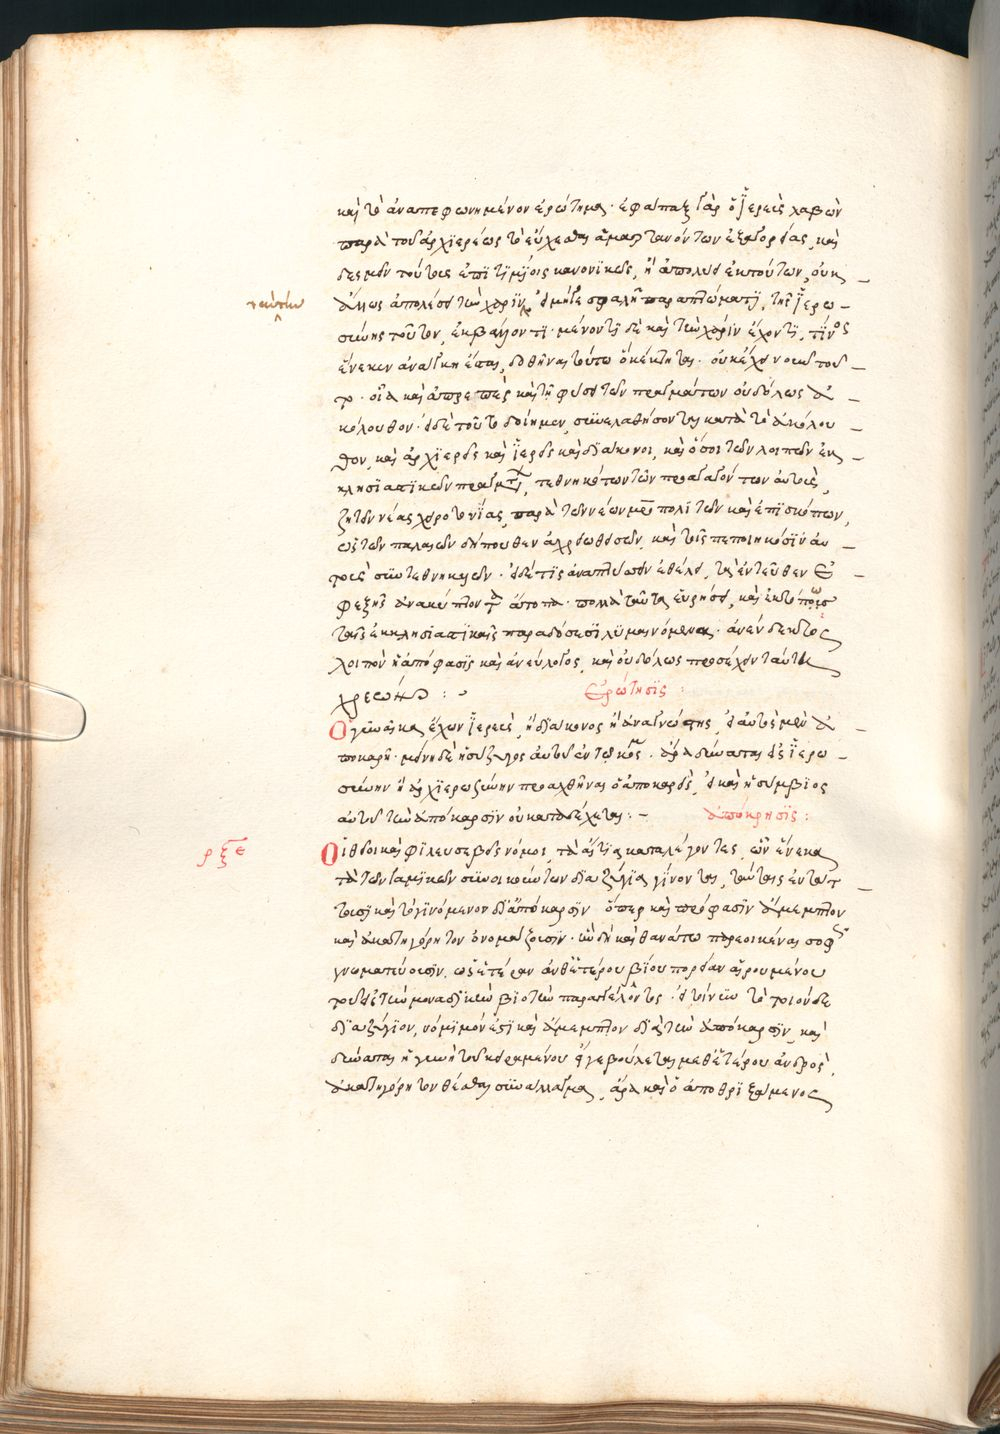 καὶ τὸ ἀναπεφωνημένον ἐρώτημα· ἐφάπαξ γὰρ ὁ ἱερεὺς λαβὼν
παρὰ τοῦ ἀρχιερέως τὸ εὔχεσθαι ἁμαρτανόντων ἐξαγορίας, καὶ
δεσμὸν τούτοις ἐπιτιμίοις κανονικῶς, ἢ ἀπολύει ἐκ τούτων, οὐκ
ταύτην
ἄλλως ἀπολέσει τὴν χάριν, εἰ μήγε σφαλῇ παραπτώματι, τῆς ἱερω
σύνης τοῦτον ἐκβάλλοντι· μένοντι δὲ καὶ τὴν χάριν ἔχοντι, τίνος
ἕνεκεν ἀνάγκη ἐστὶ, δοθῆναι τούτω ὃ κέκτηται· οὐκ ἔχει νοῦν τοῦ
το· οἷα καὶ ἀπρεπὲς καὶ τῇ φύσει τῶν πραγμάτων οὐδόλως ἀ
κόλουθον· εἰ δὲ τοῦτο δοίημεν, συνελαθήσονται κατὰ τὸ ἀκόλου
θον, καὶ ἀρχιερεῖς καὶ ἱερεῖς καὶ διάκονοι, καὶ ὅσοι τῶν λοιπῶν ἐκ
κλησιαστικῶν πραγμάτων, τεθνηκότων τῶν προαγαγόντων αὐτοὺς,
ζητεῖν νέας χειροτονίας, παρὰ τῶν νέων μητροπολιτῶν καὶ ἐπισκόπων,
ὡς τῶν παλαιῶν δήπουθεν ἀχρειωθεισῶν, καὶ τοῖς πεποιηκόσιν αὐ
τοὺς συντεθνηκυιῶν· εἰ δέ τις ἀναπτύσσειν ἐθέλει, τὰ ἐντεῦθεν ἐ
φεξῆς ἀνακύπτοντα ἄτοπα· πολλὰ ταῦτα εὑρήσει, καὶ ἐκτόπως
ταῖς ἐκκλησιαστικαῖς παραδόσεσι λυμαινόμενα· ἀνένδεκτος
λοιπὸν ἡ ἀπόφασις καὶ ἀνεύλογος, καὶ οὐδόλως προσέχειν ταύτῃ
χρεών: Ἐρώτησις:
Ὁ γυναῖκα ἔχων ἱερεὺς, ἢ διάκονος ἢ ἀναγνώστης, εἰ αὐτὸς μὲν ἀ
ποκαρῇ· μένῃ δὲ ἡ σύζυγος αὐτοῦ ἐν τῷ κόσμῳ· ἆρα δύναται εἰς ἱερω
σύνην ἢ ἀρχιερωσύνην προαχθῆναι ὁ ἀποκαρεὶς, εἰ καὶ ἡ σύμβιος
αὐτοῦ τὴν ἀπόκαρσιν οὐ καταδέχεται:- ἀπόκρησις:
ρξε
Οἱ θεῖοι καὶ φιλευσεβεῖς νόμοι, τὰ αἴτια καταλέγοντες, ὧν ἕνεκα
τὰ τῶν γαμικῶν συνοικούντων διαζύγια γίνονται, ταύταις ἐντάτ
τουσι καὶ τὸ γινόμενον δι' ἀπόκαρσιν ὅπερ καὶ πρόφασιν ἄμεμπτον
καὶ ἀκατηγόρητον ὀνομάζουσιν· ὧ δὴ καὶ θανάτω παρεοικέναι σοφῶς
γνωματεύουσιν, ὡς ἑτέραν ἀνθ' ἑτέρου βίου πορείαν αἱρουμένου
τοῦ εἰς τὴν μοναδικὴν βιοτὴν παραγγέλλοντος· εἰ τοίνυν τὸ τοιοῦτον
διαζύγιον, νόμιμόν ἐστι καὶ ἄμεμπτον διὰ τὴν ἀπόκαρσιν, καὶ
δύναται ἡ γυνὴ τοῦ κειραμένου εἴγε βούλεται μεθ' ἑτέρου ἀνδρὸς,
ἀκατηγόρητον θέσθαι συνάλλαγμα, ἄρα καὶ ὁ ἀποθριξάμενος